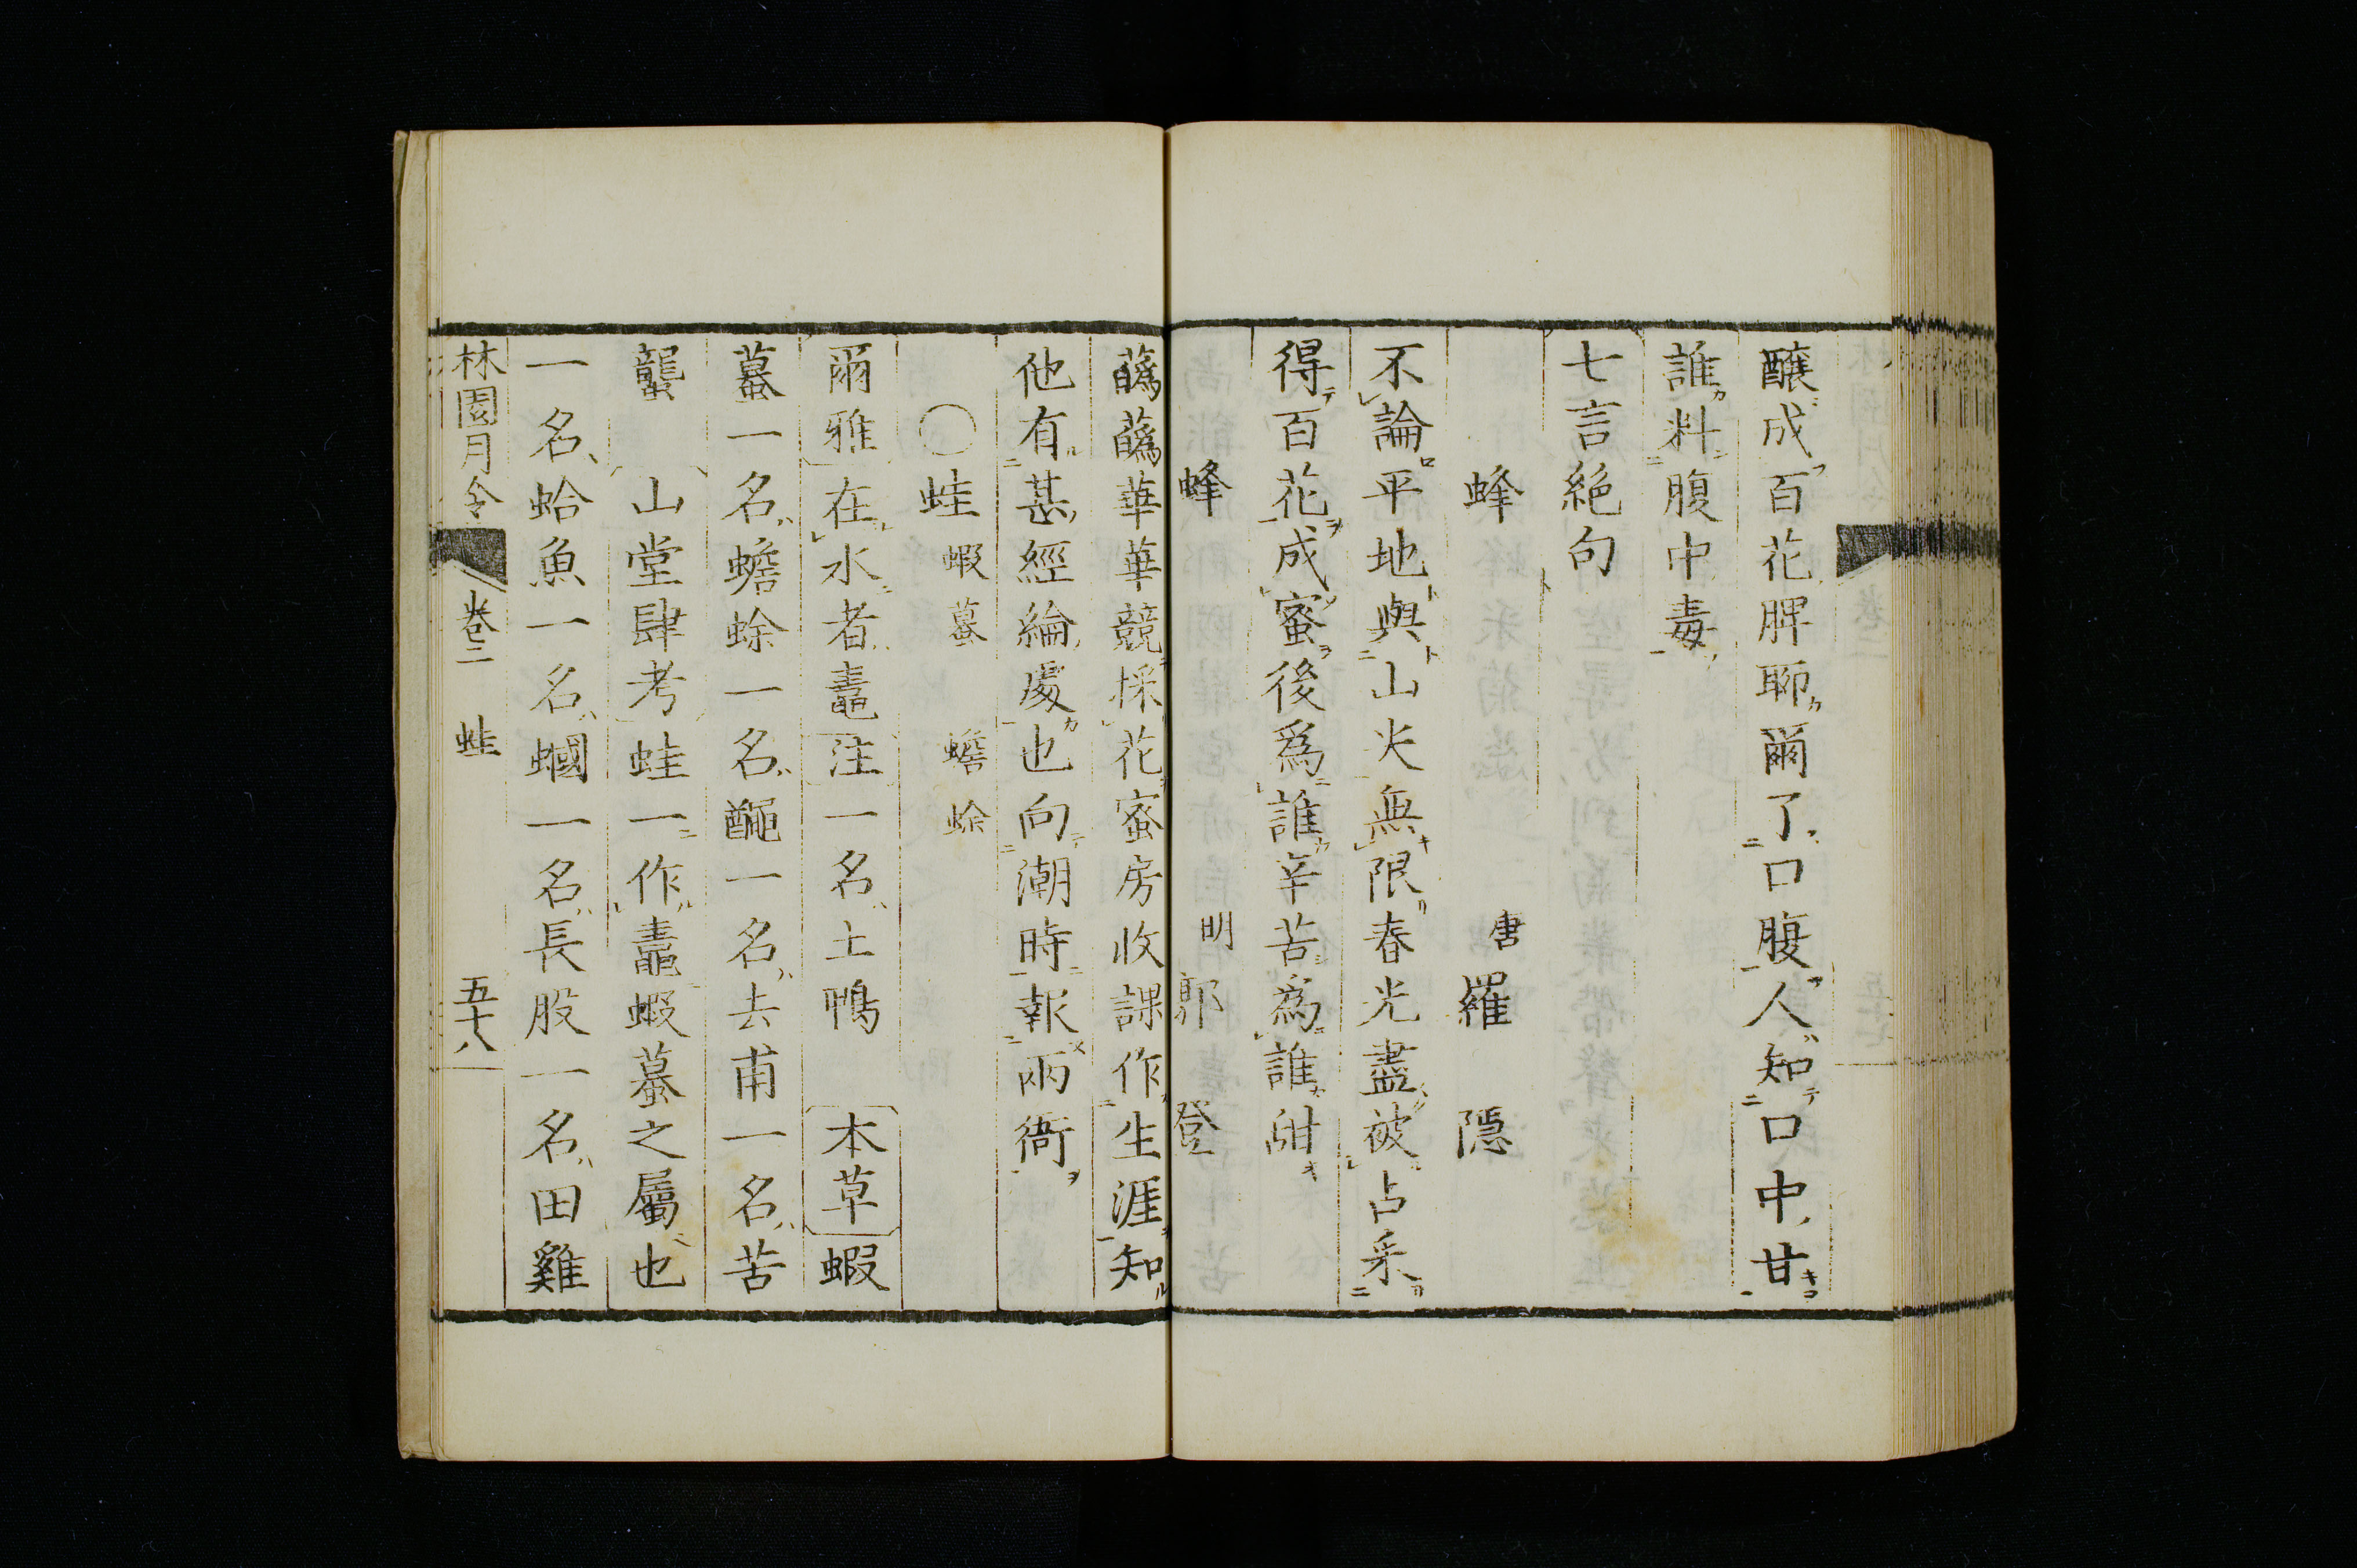 醸成百花脾聊爾了口腹人知口中甘
誰料腹中毒
七言絶句
蜂 唐 羅隱
不論平地與山尖無限春光盡被占采
得百花成蜜後爲誰辛苦爲誰甜
蜂 明 郭登
蘤蘤華華競採花蜜房收課作生涯知
他有甚經綸處也向潮時報兩衙
〇蛙 蝦蟇 蟾蜍
爾雅在水者鼃注一名土鴨 本草蝦
蟇一名蟾蜍一名𪓰一名去甫一名苦
蠪 山堂肆考蛙一作鼃蝦蟇之屬也
一名蛤魚一名蟈一名長股一名田雞
林園月令 卷三 蛙 五十八